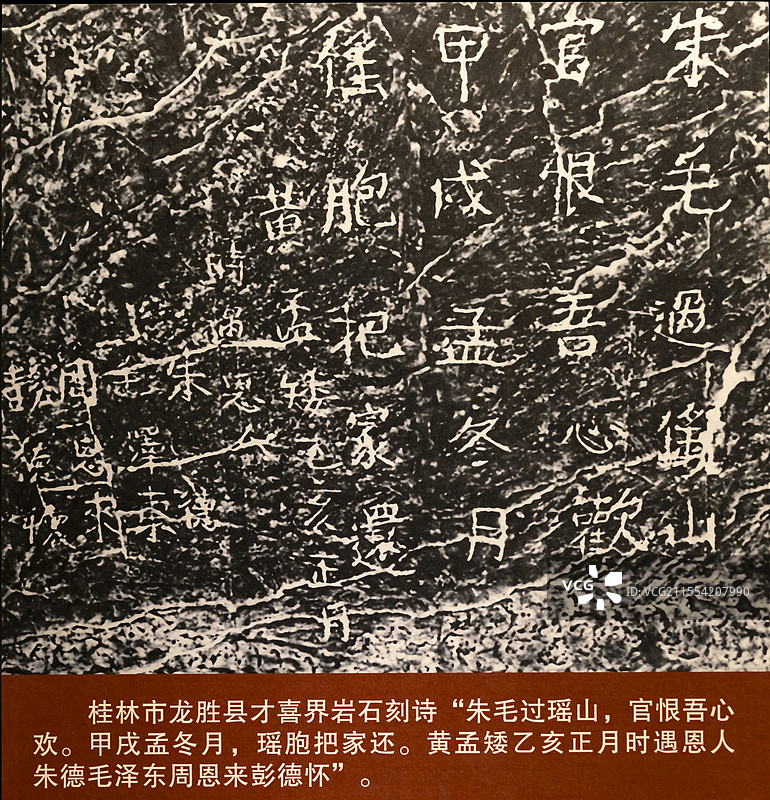 朱毛過傜山
官恨吾心歡
甲戌孟冬月
傜胞把家還
黄孟矮乙亥正月
時遇恩人
朱德
毛澤東
周恩来
彭德懷
VCG
ID: VCG211554207990
桂林市龙胜县才喜界岩石刻诗“朱毛过瑶山，官恨吾心
欢。甲戌孟冬月，瑶胞把家还。黄孟矮乙亥正月时遇恩人
朱德毛泽东周恩来彭德怀”。